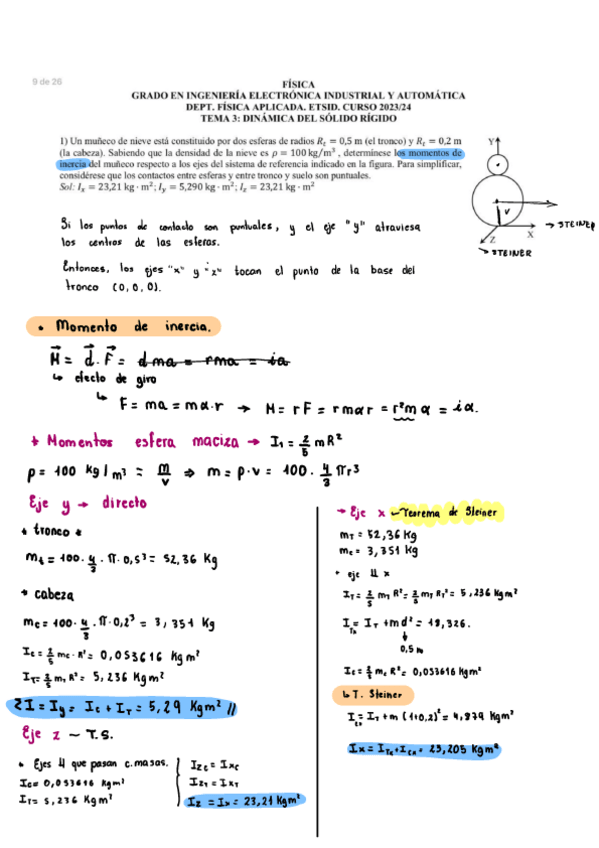 9 de 26
FÍSICA
GRADO EN INGENIERÍA ELECTRÓNICA INDUSTRIAL Y AUTOMÁTICA
DEPT. FÍSICA APLICADA. ETSID. CURSO 2023/24
TEMA 3: DINÁMICA DEL SÓLIDO RÍGIDO
1) Un muñeco de nieve está constituido por dos esferas de radios R_t = 0,5 m (el tronco) y R_t = 0,2 m
(la cabeza). Sabiendo que la densidad de la nieve es ρ = 100 kg/m³, determínese los momentos de
inercia del muñeco respecto a los ejes del sistema de referencia indicado en la figura. Para simplificar,
considérese que los contactos entre esferas y entre tronco y suelo son puntuales.
Sol: I_x = 23,21 kg · m²; I_y = 5,290 kg · m²; I_z = 23,21 kg · m²
Y
r
X
→ STEINER
Z
→ STEINER
Si los puntos de contacto son puntuales, y el eje "y" atraviesa
los centros de las esferas.
Entonces, los ejes "x" y "z" tocan el punto de la base del
tronco (0,0,0).
• Momento de inercia.
M = d · F = dma = rma = iα
↳ efecto de giro
↳ F = ma = mα·r → M = rF = rmαr = r²mα = iα.
* Momentos esfera maciza → I₁ = 2/5 mR²
ρ = 100 kg/m³ = m/v ⇒ m = ρ·v = 100 · 4/3 πr³
Eje y → directo
* tronco
m_t = 100 · 4/3 · π · 0,5³ = 52,36 Kg
* cabeza
m_c = 100 · 4/3 · π · 0,2³ = 3,351 Kg
I_c = 2/5 m_c · R² = 0,053616 Kg m²
I_T = 2/5 m_t R² = 5,236 Kg m²
ΣI = I_y = I_c + I_T = 5,29 Kgm² //
Eje z ~ T.S.
• Ejes 4 que pasan c.masas.
I_c = 0,053616 Kgm²
I_T = 5,236 Kgm²
I_zc = I_xc
I_zT = I_xT
I_z = I_x = 23,21 Kgm²
→ Eje x ~ Teorema de Steiner
m_T = 52,36 Kg
m_c = 3,351 Kg
• eje 4 x
I_T = 2/5 m_T R² = 2/5 m_T R_T² = 5,236 Kgm²
I_Tx = I_T + md² = 18,326.
↓
0,5 m
I_c = 2/5 m_c R² = 0,053616 Kgm²
↳ T. Steiner
I_cx = I_T + m (1+0,2)² = 4,879 Kgm²
I_x = I_Tx + I_cx = 23,205 Kgm²